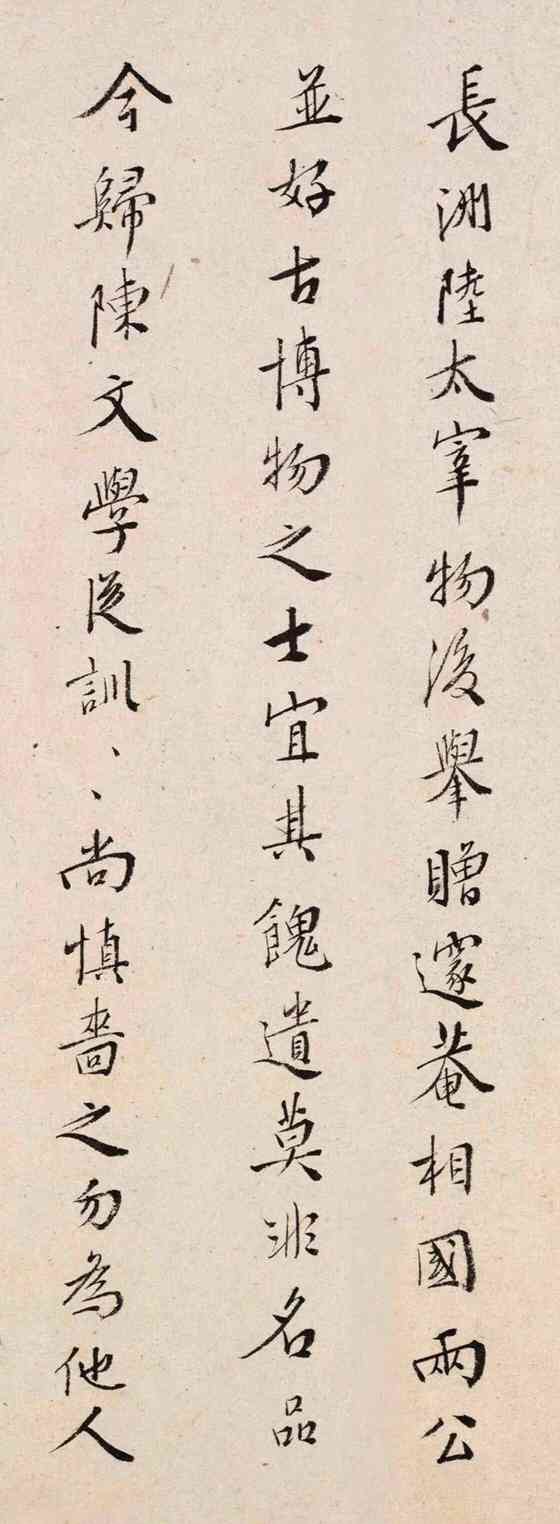 長洲陸太宰物後舉贈邃菴相國兩公
並好古博物之士宜其餽遺莫非名品
今歸陳文學從訓〻尚慎嗇之勿為他人